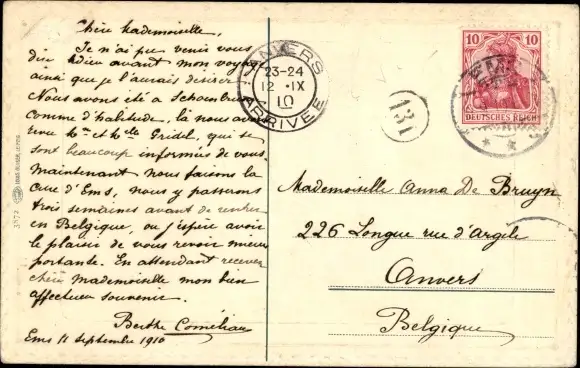 Chère Mademoiselle,
Je n'ai pu venir vous
dire adieu avant mon voyage
ainsi que je l'aurais désiré.
Nous avons été à
comme d'habitude, là nous avons
revu Mr et Mlle Gridel, qui se
sont beaucoup informés de vous.
Maintenant nous faisons la
cure d'Ems, nous y passerons
trois semaines avant de rentrer
en Belgique, où j'espère avoir
le plaisir de vous revoir mieux
portante. En attendant recevez
chère Mademoiselle mon bien
affectueux souvenir.
Berthe
Ems 11 Septembre 1910
3872
ANVERS
23-24
12 · IX
10
ARRIVÉE
131
10 10
DEUTSCHES REICH
Mademoiselle Anna De Bruyn
226 Longue rue d'Argile
Anvers
Belgique